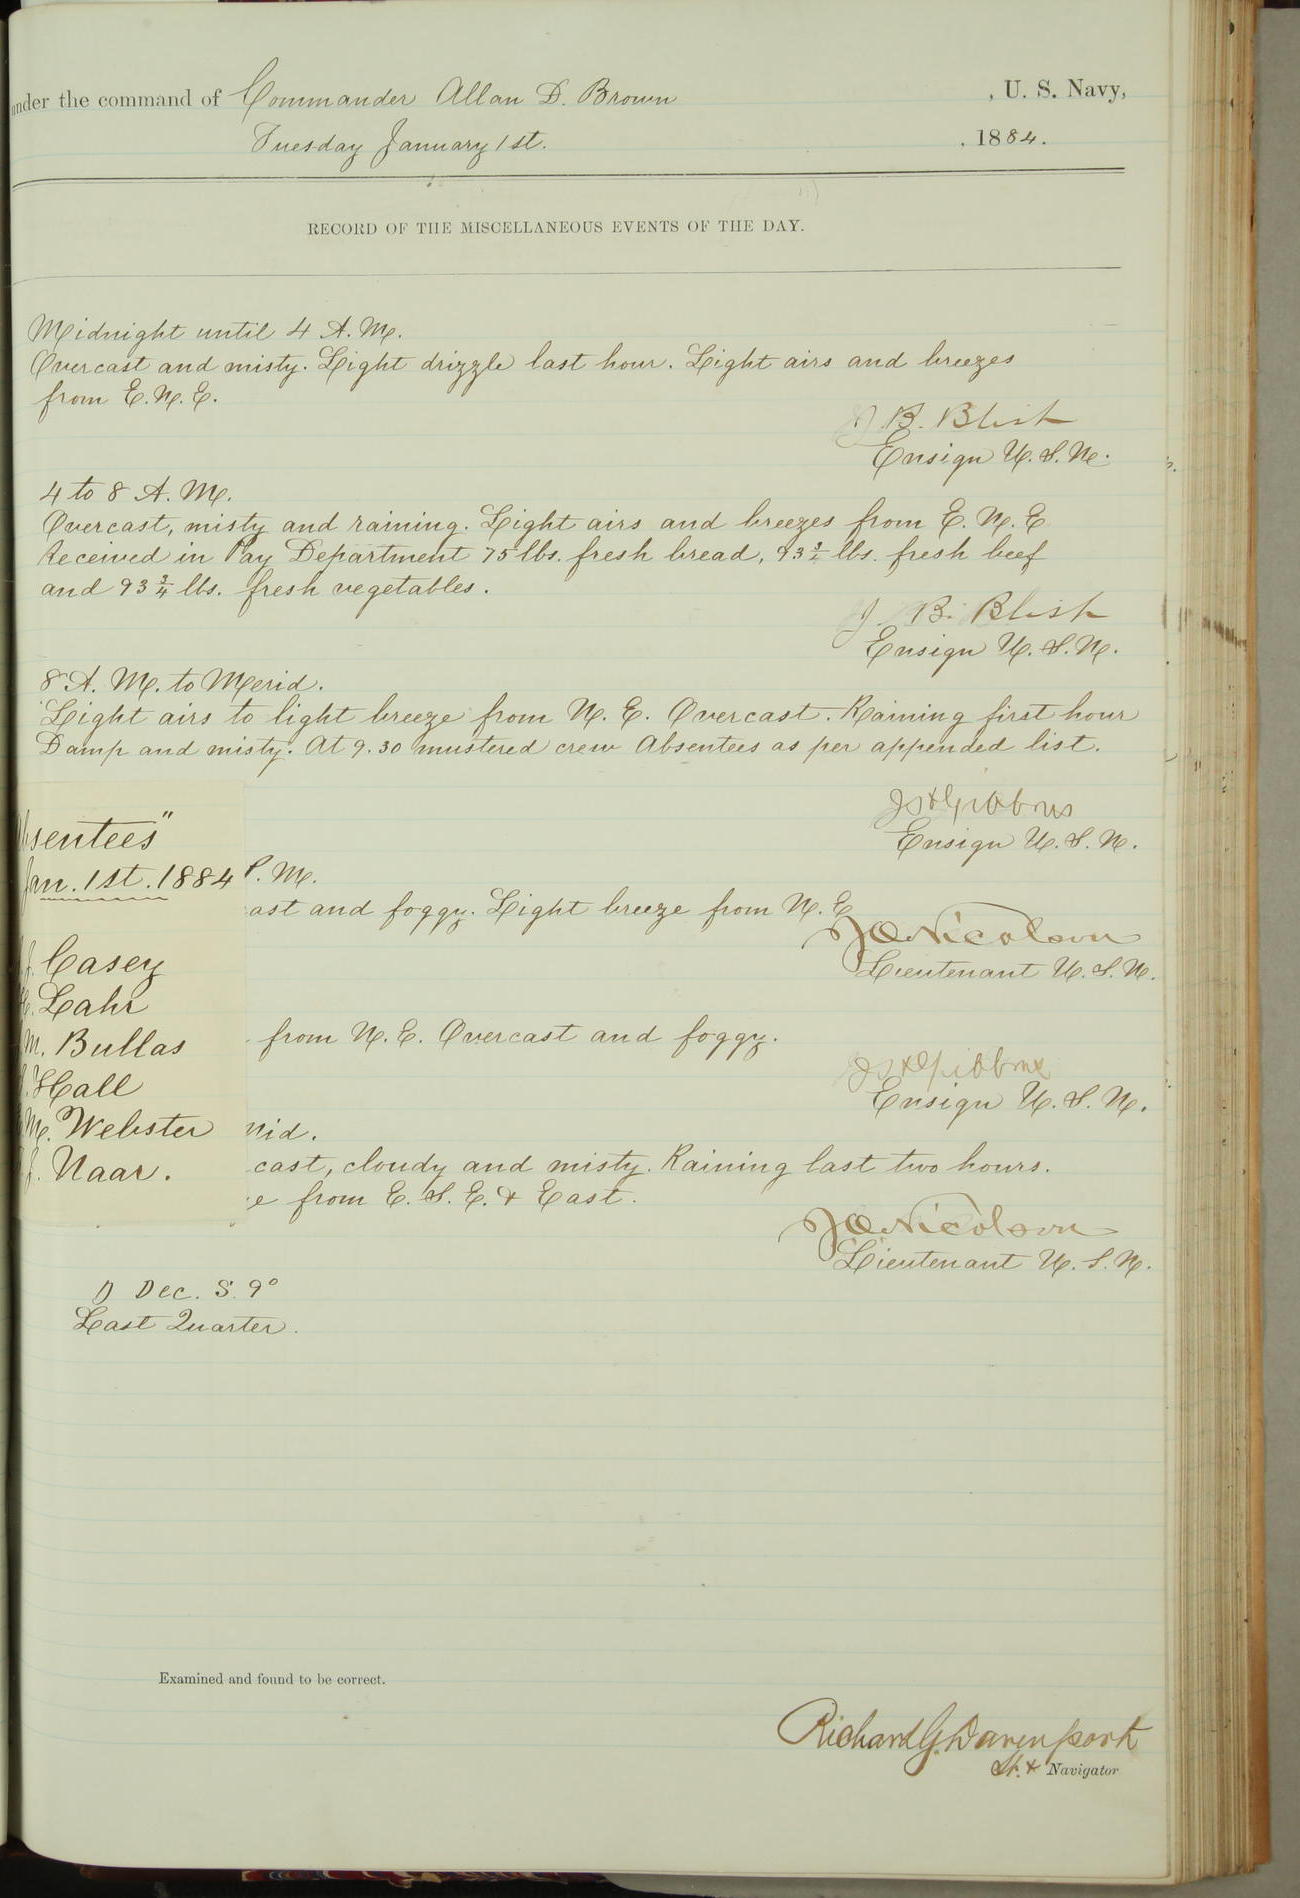 under the command of Commander Allan D. Brown , U. S. Navy,
Tuesday January 1st. , 1884.
RECORD OF THE MISCELLANEOUS EVENTS OF THE DAY.
Midnight until 4 A.M.
Overcast and misty. Light drizzle last hour. Light airs and breezes
from E.N.E.
J. B. Blish
Ensign U.S.N.
4 to 8 A.M.
Overcast, misty and raining. Light airs and breezes from E.N.E
Received in Pay Department 75 lbs. fresh bread, 93 3/4 lbs. fresh beef
and 93 3/4 lbs. fresh vegetables.
J. B. Blish
Ensign U.S.N.
8 A.M. to Merid.
Light airs to light breeze from N.E. Overcast. Raining first hour
Damp and misty. At 9.30 mustered crew Absentees as per appended list.
Gibbons
Ensign U.S.N.
bsentees"
Jan. 1st. 1884
P.M.
ast and foggy. Light breeze from N.E
Nicolson
Lieutenant U.S.N.
Casey
Lahr
M. Bullas
Hall
M. Webster
J. Naar.
from N.E. Overcast and foggy.
Gibbons
Ensign U.S.N.
Mid.
cast, cloudy and misty. Raining last two hours.
e from E.S.E. & East.
Nicolson
Lieutenant U.S.N.
Dec. S. 9°
Last Quarter.
Examined and found to be correct.
Richard G. Davenport
Lt. & Navigator